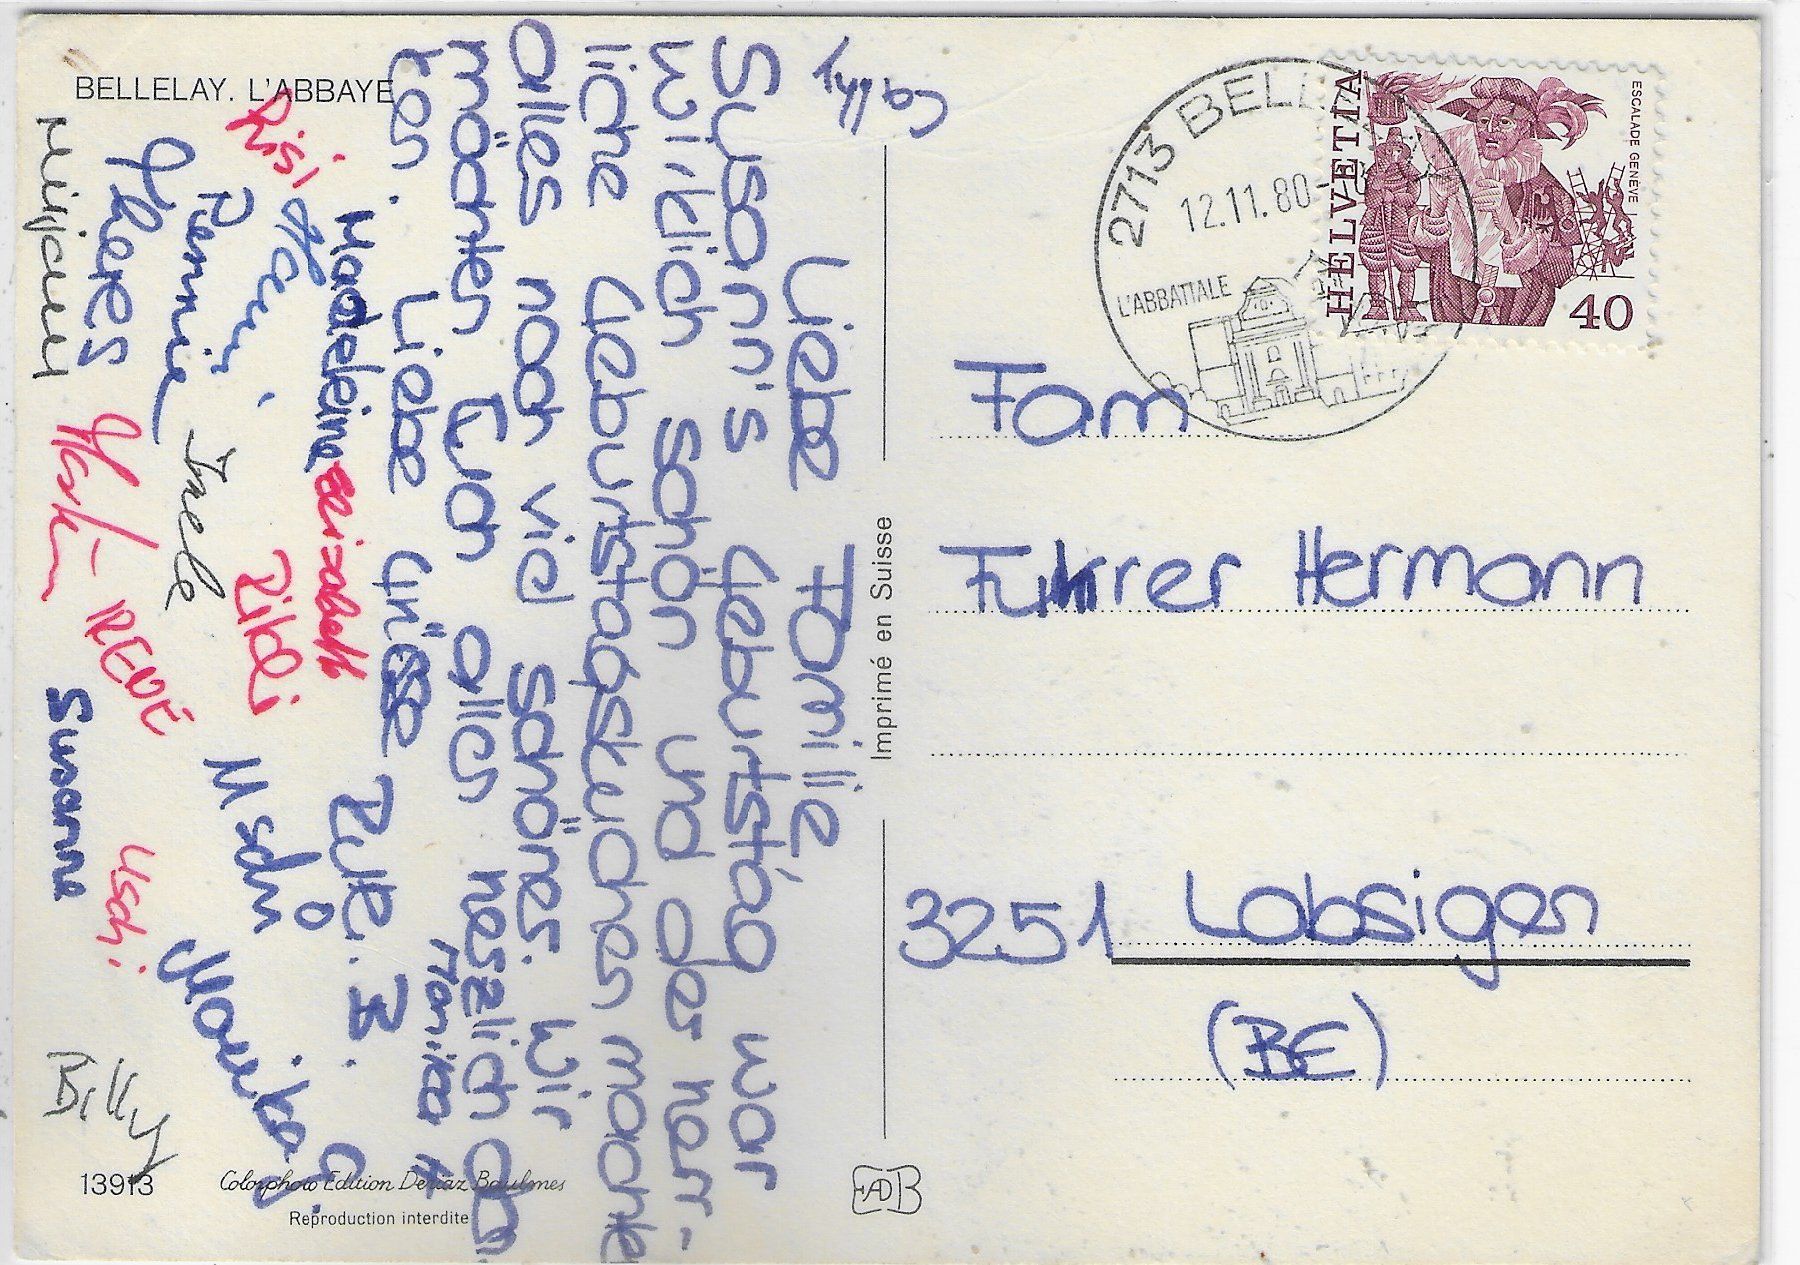 BELLELAY. L'ABBAYE
Cathy
Liebe Familie
Susann's Geburtstag war
wirklich schön und der herr-
liche Geburtstagskuchen machte
alles noch viel schöner. Wir
möchten Euch allen herzlich dan
ken. Liebe Grüsse
Ruti. B.
Monika H
Madeleine
Elizabeth
Heini
Risi
Rikli
Pennie
Thele
Uschi
Marika G.
IRENE
Uschi
Susanne
Billy
13913
Colorphoto Edition Deriaz Baulmes
Reproduction interdite
Imprimé en Suisse
EDB
2713 BELL
12.11.80-
L'ABBATIALE
HELVETIA
ESCALADE GENÈVE
40
Fam
Fuhrer Hermann
3251 Lobsigen
(BE)